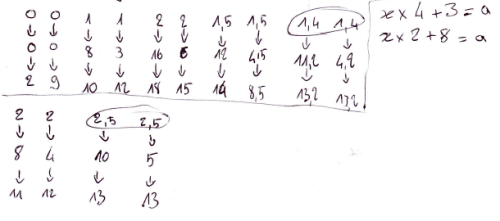 0 0 1 1 2 2 1,5 1,5 1,4 1,4
↓ ↓ ↓ ↓ ↓ ↓ ↓ ↓ ↓ ↓
0 0 8 3 16 6 12 4,5 11,2 4,2
↓ ↓ ↓ ↓ ↓ ↓ ↓ ↓ ↓ ↓
2 9 10 12 18 15 14 8,5 13,2 13,2
x × 4 + 3 = a
x × 2 + 8 = a
2 2 2,5 2,5
↓ ↓ ↓ ↓
8 4 10 5
↓ ↓ ↓ ↓
11 12 13 13